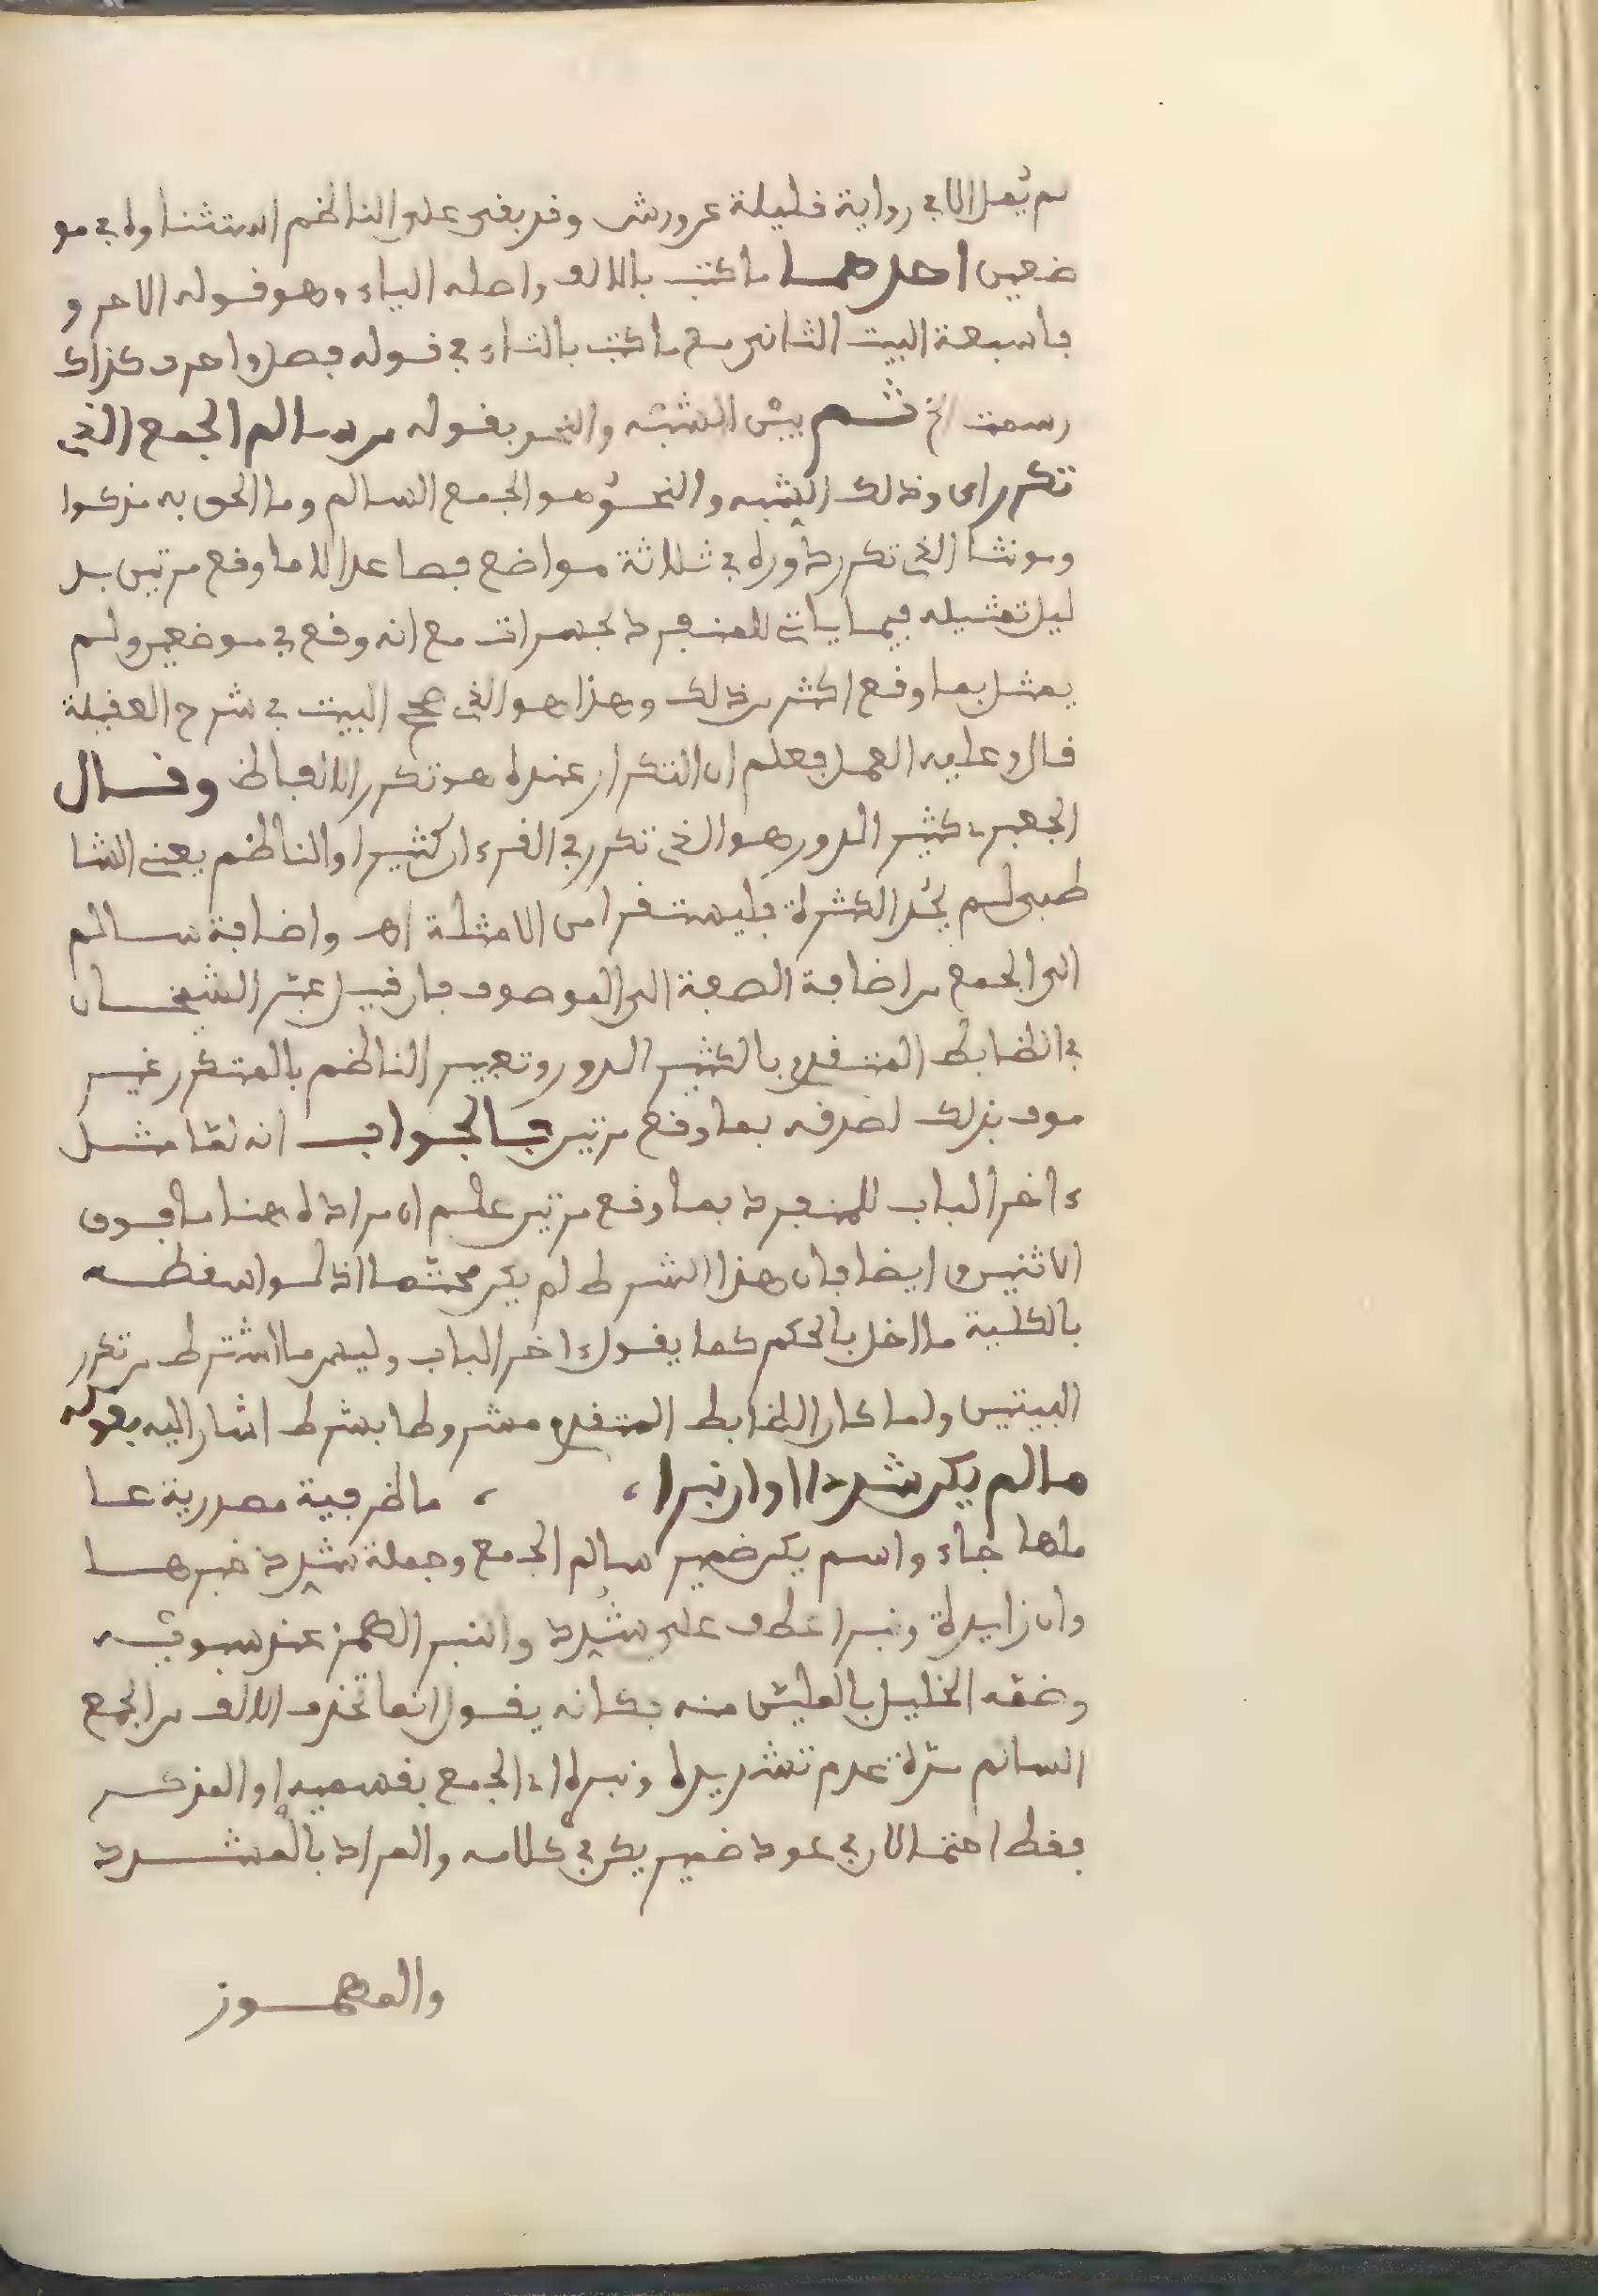 لم يُمل الا في رواية قليلة عن ورش وقد بقى على الناظم استثناؤه في مو
ضعين احدهما ما كتب بالالف واصله الياء وهو قوله الاحرو
فا سبعة البيت الثاني مع ما كتب بالتاء في قوله فصل واحرف كذاك
رسمت الخ ثم بيّن الشبه والنحو بقوله من سالم الجمع الذي
تكررا اى وذلك الشبه والنحو هو الجمع السالم وما الحق به مذكرا
ومونثا الذي تكرر دوره في ثلاثة مواضع فصاعدا لا ما وقع مرتين بد
ليل تمثيله فيما ياتي للمنفرد بحسرات مع انه وقع في موضعين ولم
يمثل بما وقع اكثر من ذلك وهذا هو الذي صحح البيت في شرح العقيلة
قال وعليه العمل فعلم ان التكرار عنده هو تكرر الالفاظ وقال
الجعبرى كثير الدور هو الذي تكرر في القرءان كثيرا والناظم يعنى الشا
طبى لم يحُد الكثرة فليستقرا من الامثلة اهـ واضافة سالم
الى الجمع من اضافة الصفة الى الموصوف فان قيل عبّر الشيخان
في الضابط المتقدم بالكثير الدور وتعبير الناظم بالمتكرر غير
موف بذلك لصدقه بما وقع مرتين فالجواب انه لمّا مثل
ءاخر الباب للمنفرد بما وقع مرتين علم ان مراده هنا ما فوق
الاثنين وايضا فان هذا الشرط لم يكن محتّما اذ لو اسقطه
بالكلية ما اخل بالحكم كما يقول ءاخر الباب وليس ما اشترط من تكرر
البيتين ولما كان الضابط المتقدم مشروطا بشرط اشار اليه بقوله
ما لم يكن شدد ا او ان نبرا ، ، ما ظرفية مصدرية عا
ملها جاء واسم يكن ضمير سالم الجمع وجملة شُدد خبرها
وان زايدة ونبرا عطف على شُدد والنبر الهمز عند سيبويه
وخصّه الخليل بالمليّن منه فكانه يقول انما تحذف الالف من الجمع
السالم مدّة عدم تشديده ونبره اى الجمع بقسميه او المذكر
فقط احتمالان في عود ضمير يكن في كلامه والمراد بالمشدد
والمهموز